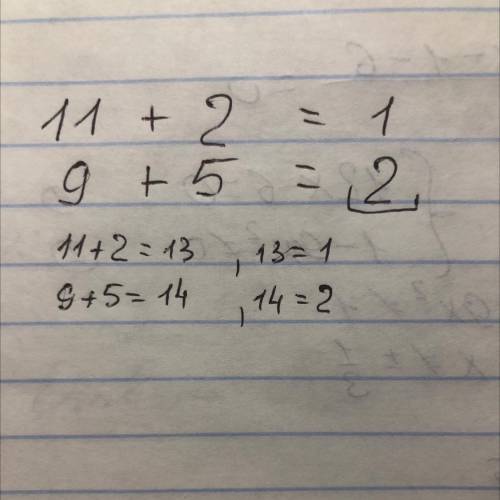 11 + 2 = 1
9 + 5 = 2
11+2=13 , 13=1
9+5=14 , 14=2